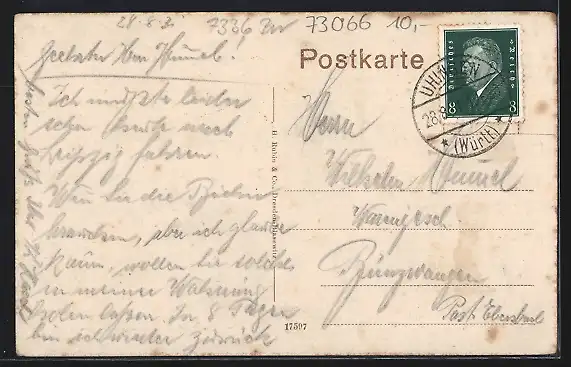 28.8.3
7336
73066 10,-
Postkarte
Geehrter Herr Hummel!
Ich müßte leider
schon heute nach
Leipzig fahren.
Wenn Sie die Bücher
brauchen, aber ich glaube
kaum, wollen Sie solche
in meiner Wohnung
holen lassen. In 8 Tagen
bin ich wieder zurück
R. Rubin & Co., Dresden-Blasewitz
17597
Deutsches Reich
8 8
UHINGEN
28.8.
* (Württ) *
Herrn
Wilhelm Hummel
Bünzwangen
Post Ebersbach